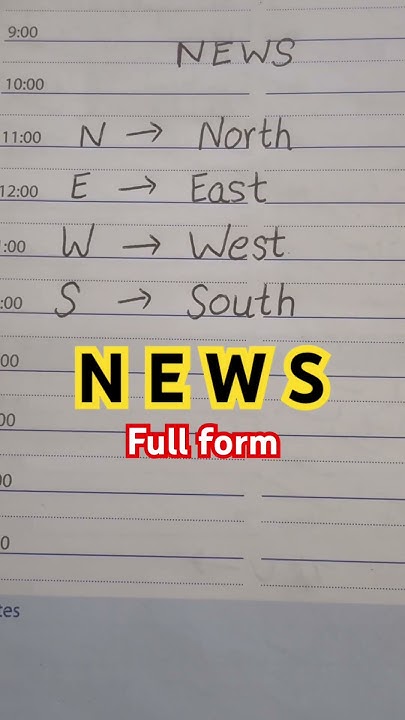 9:00
NEWS
10:00
11:00 N → North
12:00 E → East
1:00 W → West
:00 S → South
NEWS
:00
Full form
00
00
0
tes